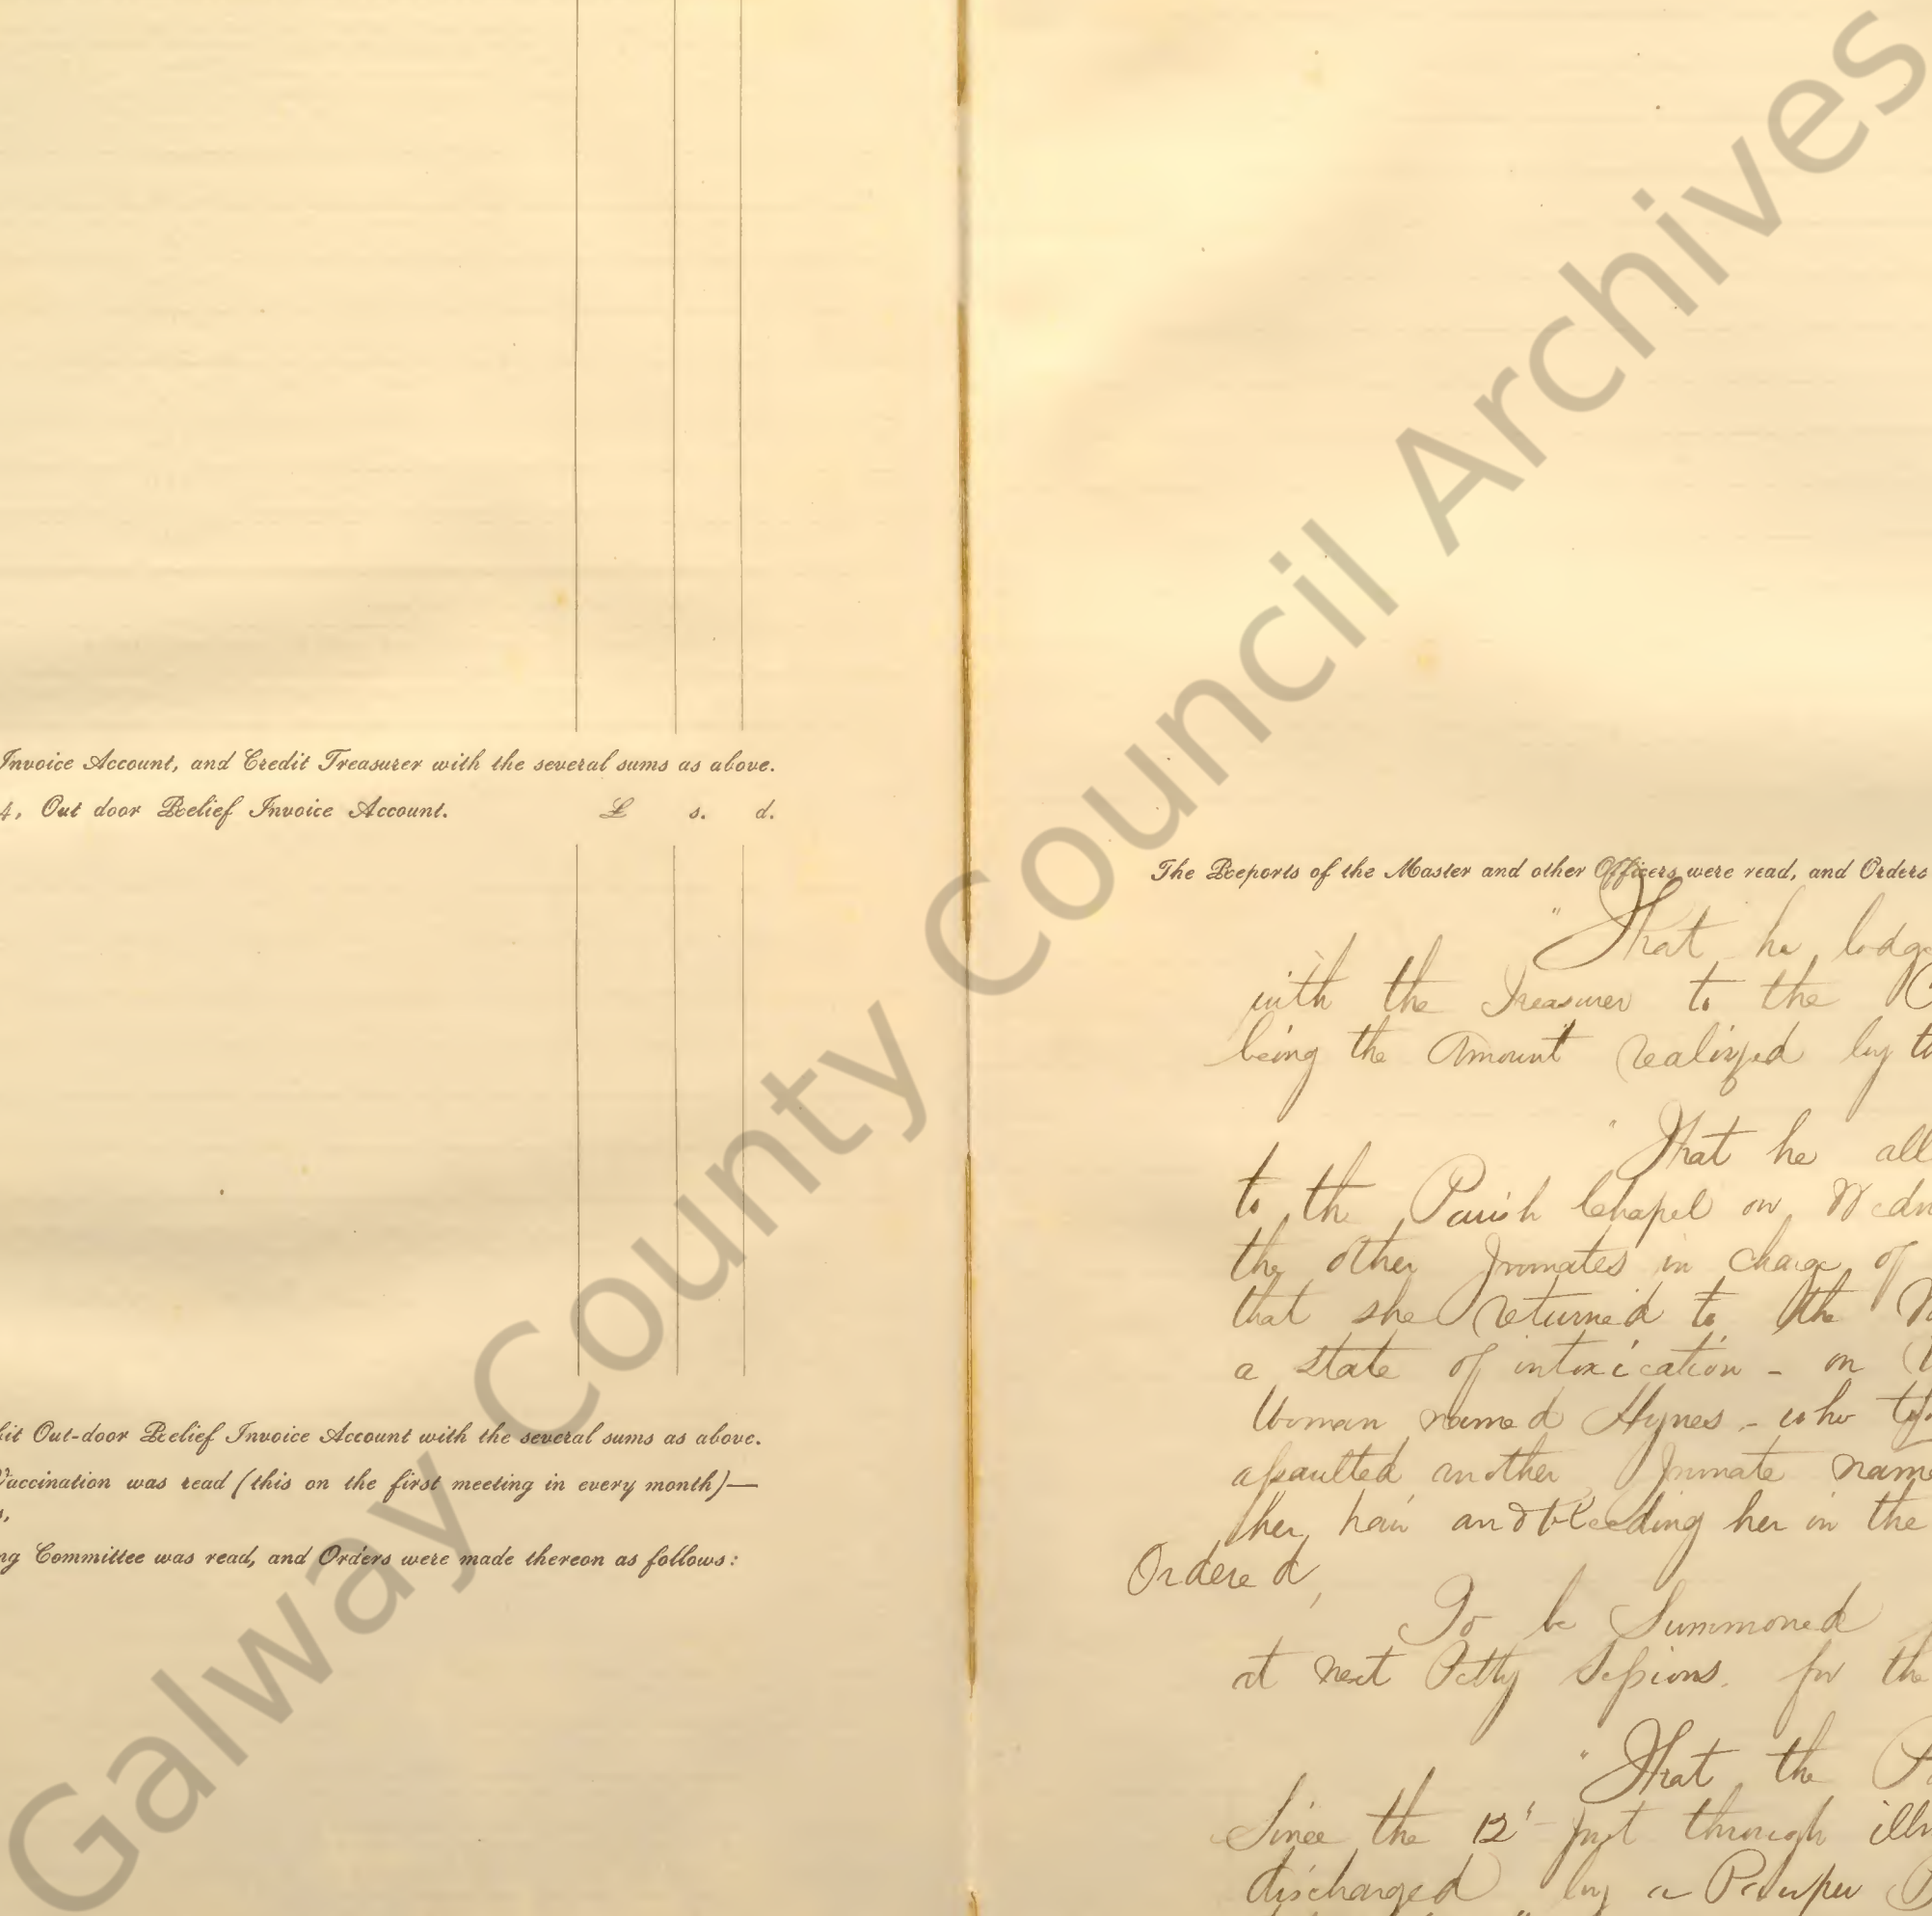 Invoice Account, and Credit Treasurer with the several sums as above.
4, Out door Relief Invoice Account. £ s. d.
Out-door Relief Invoice Account with the several sums as above.
Vaccination was read (this on the first meeting in every month)—
Committee was read, and Orders were made thereon as follows:
The Reports of the Master and other Officers were read, and Orders
"That he
with the Treasurer to the
being the Amount realized by
"That he
to the Parish Chapel on
the other Inmates in charge of
that she returned to the
a state of intoxication - on
Woman named Hynes - who
assaulted another Inmate
her hair and her in the
Ordered,
To be Summoned
at next Petty Sessions. for the
"That the
Since the 12' Inst through
discharged by a Pauper
Galway County Council Archives